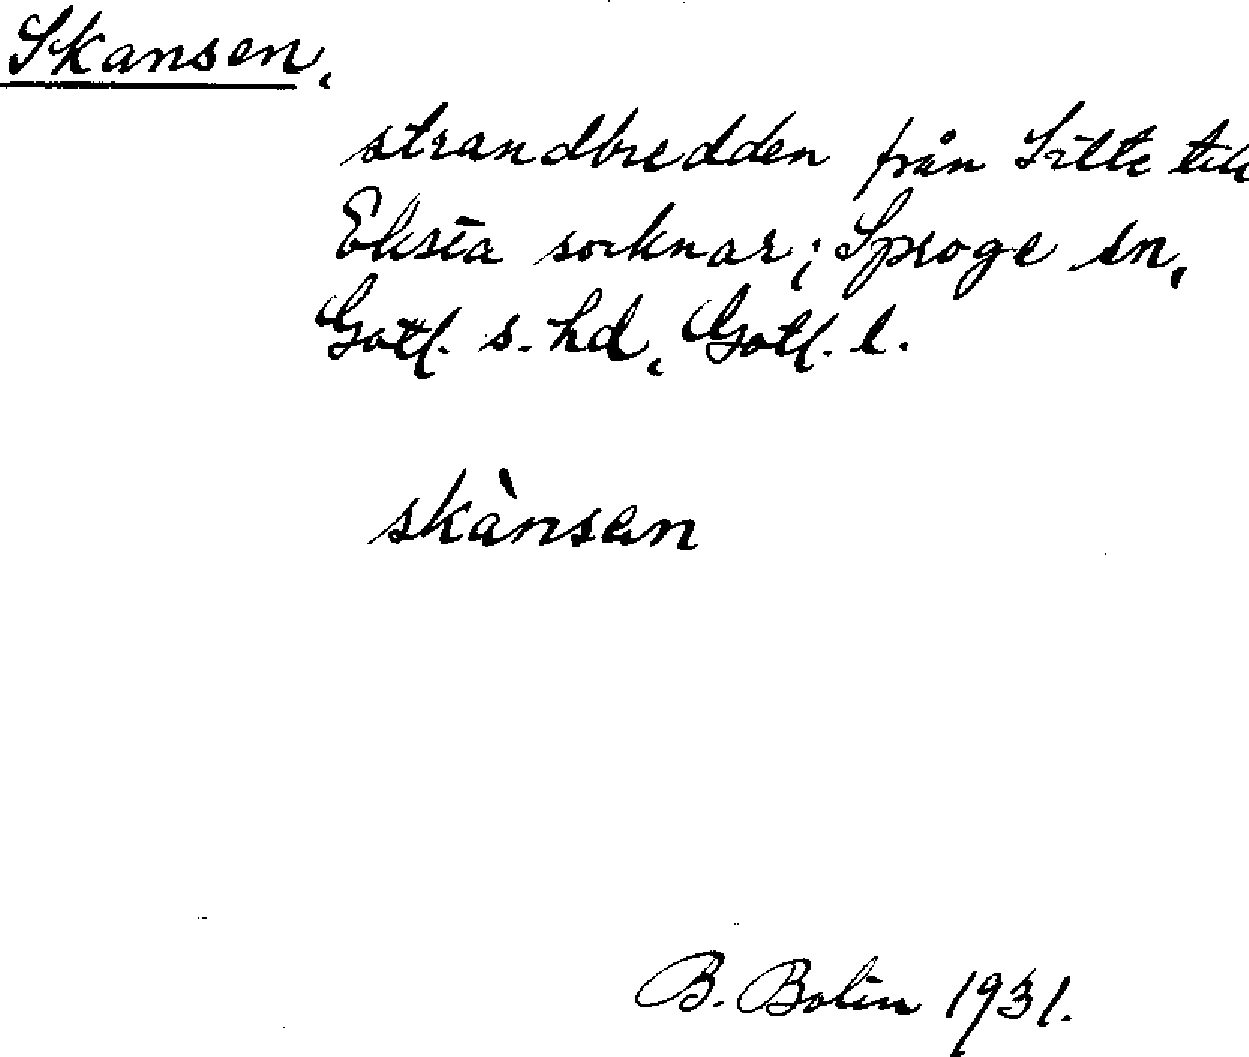 Skansen,
strandbredden från Silte till
Eksta socknar; Sproge sn,
Gotl. s. hd, Gotl. l.
skànsen
B. Bolin 1931.